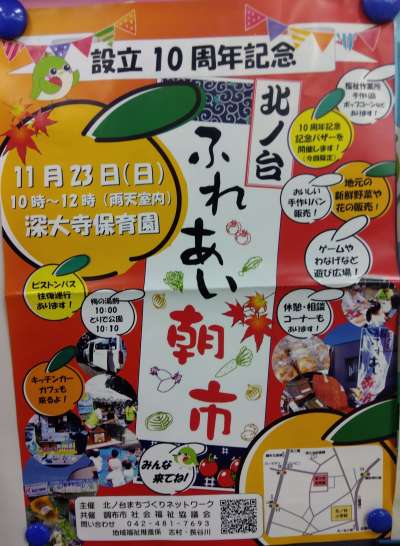 設立10周年記念
北ノ台
ふれあい
朝市
11月23日(日)
10時～12時(雨天室内)
深大寺保育園
福祉作業所
手作り品
ポップコーンなど
あります!
10周年記念
記念バザーを
開催します!
(今回限定)
おいしい
手作りパン
販売!
地元の
新鮮野菜や
花の販売!
ゲームや
わなげなど
遊び広場!
ピストンバス
往復運行
あります!
梅の湯前
10:00
とりで公園
10:10
休憩・相談
コーナーも
あります!
キッチンカー
カフェも
来るよ!
みんな
来てね!
主催 北ノ台まちづくりネットワーク
共催 調布市社会福祉協議会
問い合わせ 042-481-7693
地域福祉推進係 志村・長谷川